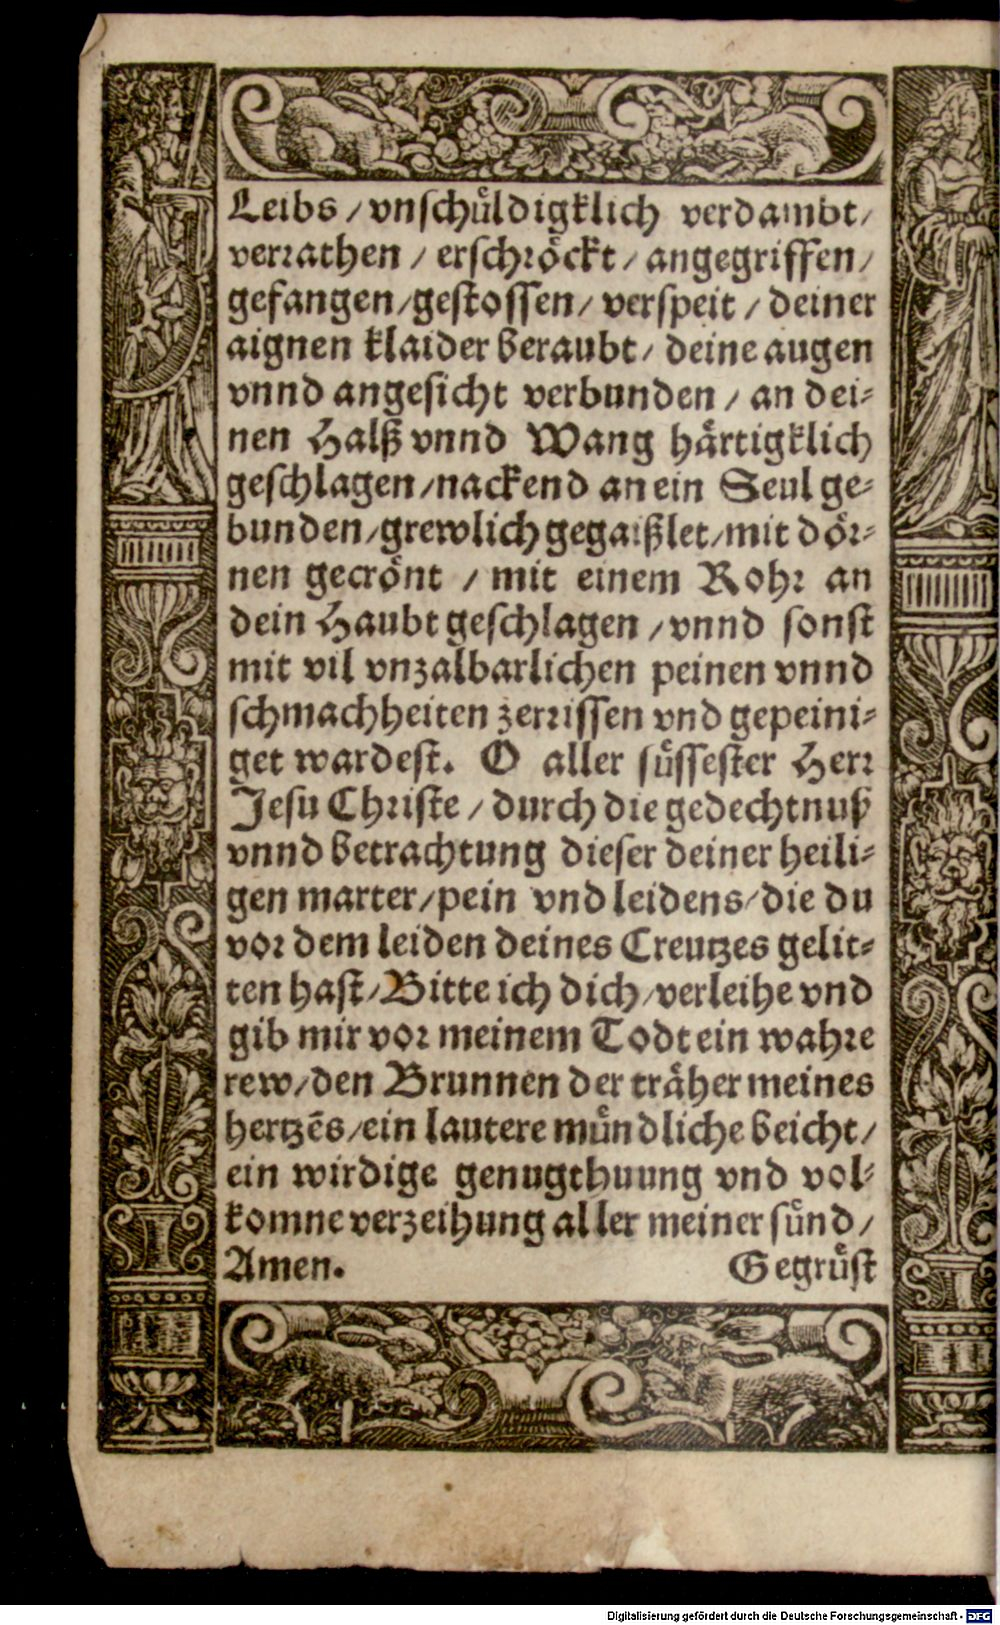 Leibs / vnschuͤldigklich verdambt /
verrathen / erschroͤckt / angegriffen /
gefangen / gestossen / verspeit / deiner
aignen klaider beraubt / deine augen
vnnd angesicht verbunden / an dei-
nen Halß vnnd Wang haͤrtigklich
geschlagen / nackend an ein Seul ge-
bunden / grewlich gegaißlet / mit doͤr-
nen gecroͤnt / mit einem Rohr an
dein Haubt geschlagen / vnnd sonst
mit vil vnzalbarlichen peinen vnnd
schmachheiten zerrissen vnd gepeini-
get wardest. O aller suͤssester Herr
Jesu Christe / durch die gedechtnuß
vnnd betrachtung dieser deiner heili-
gen marter / pein vnd leidens / die du
vor dem leiden deines Creutzes gelit-
ten hast / Bitte ich dich / verleihe vnd
gib mir vor meinem Todt ein wahre
rew / den Brunnen der traͤher meines
hertzēs / ein lautere muͤndliche beicht /
ein wirdige genugthuung vnd vol-
komne verzeihung aller meiner suͤnd /
Amen. Gegruͤst
Digitalisierung gefördert durch die Deutsche Forschungsgemeinschaft - DFG